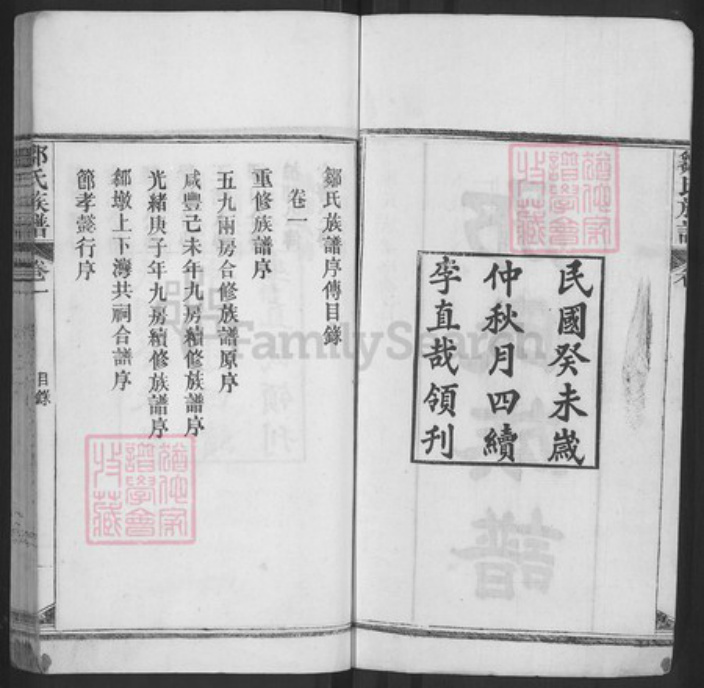 民國癸未歲
仲秋月四續
李直哉領刋
鄒氏族譜序傳目錄
卷一
重修族譜序
五九兩房合修族譜原序
咸豐己未年九房續修族譜序
光緒庚子年九房續修族譜序
鄒墩上下灣共祠合譜序
節孝懿行序
目錄
鄒氏族譜
卷一
FamilySearch